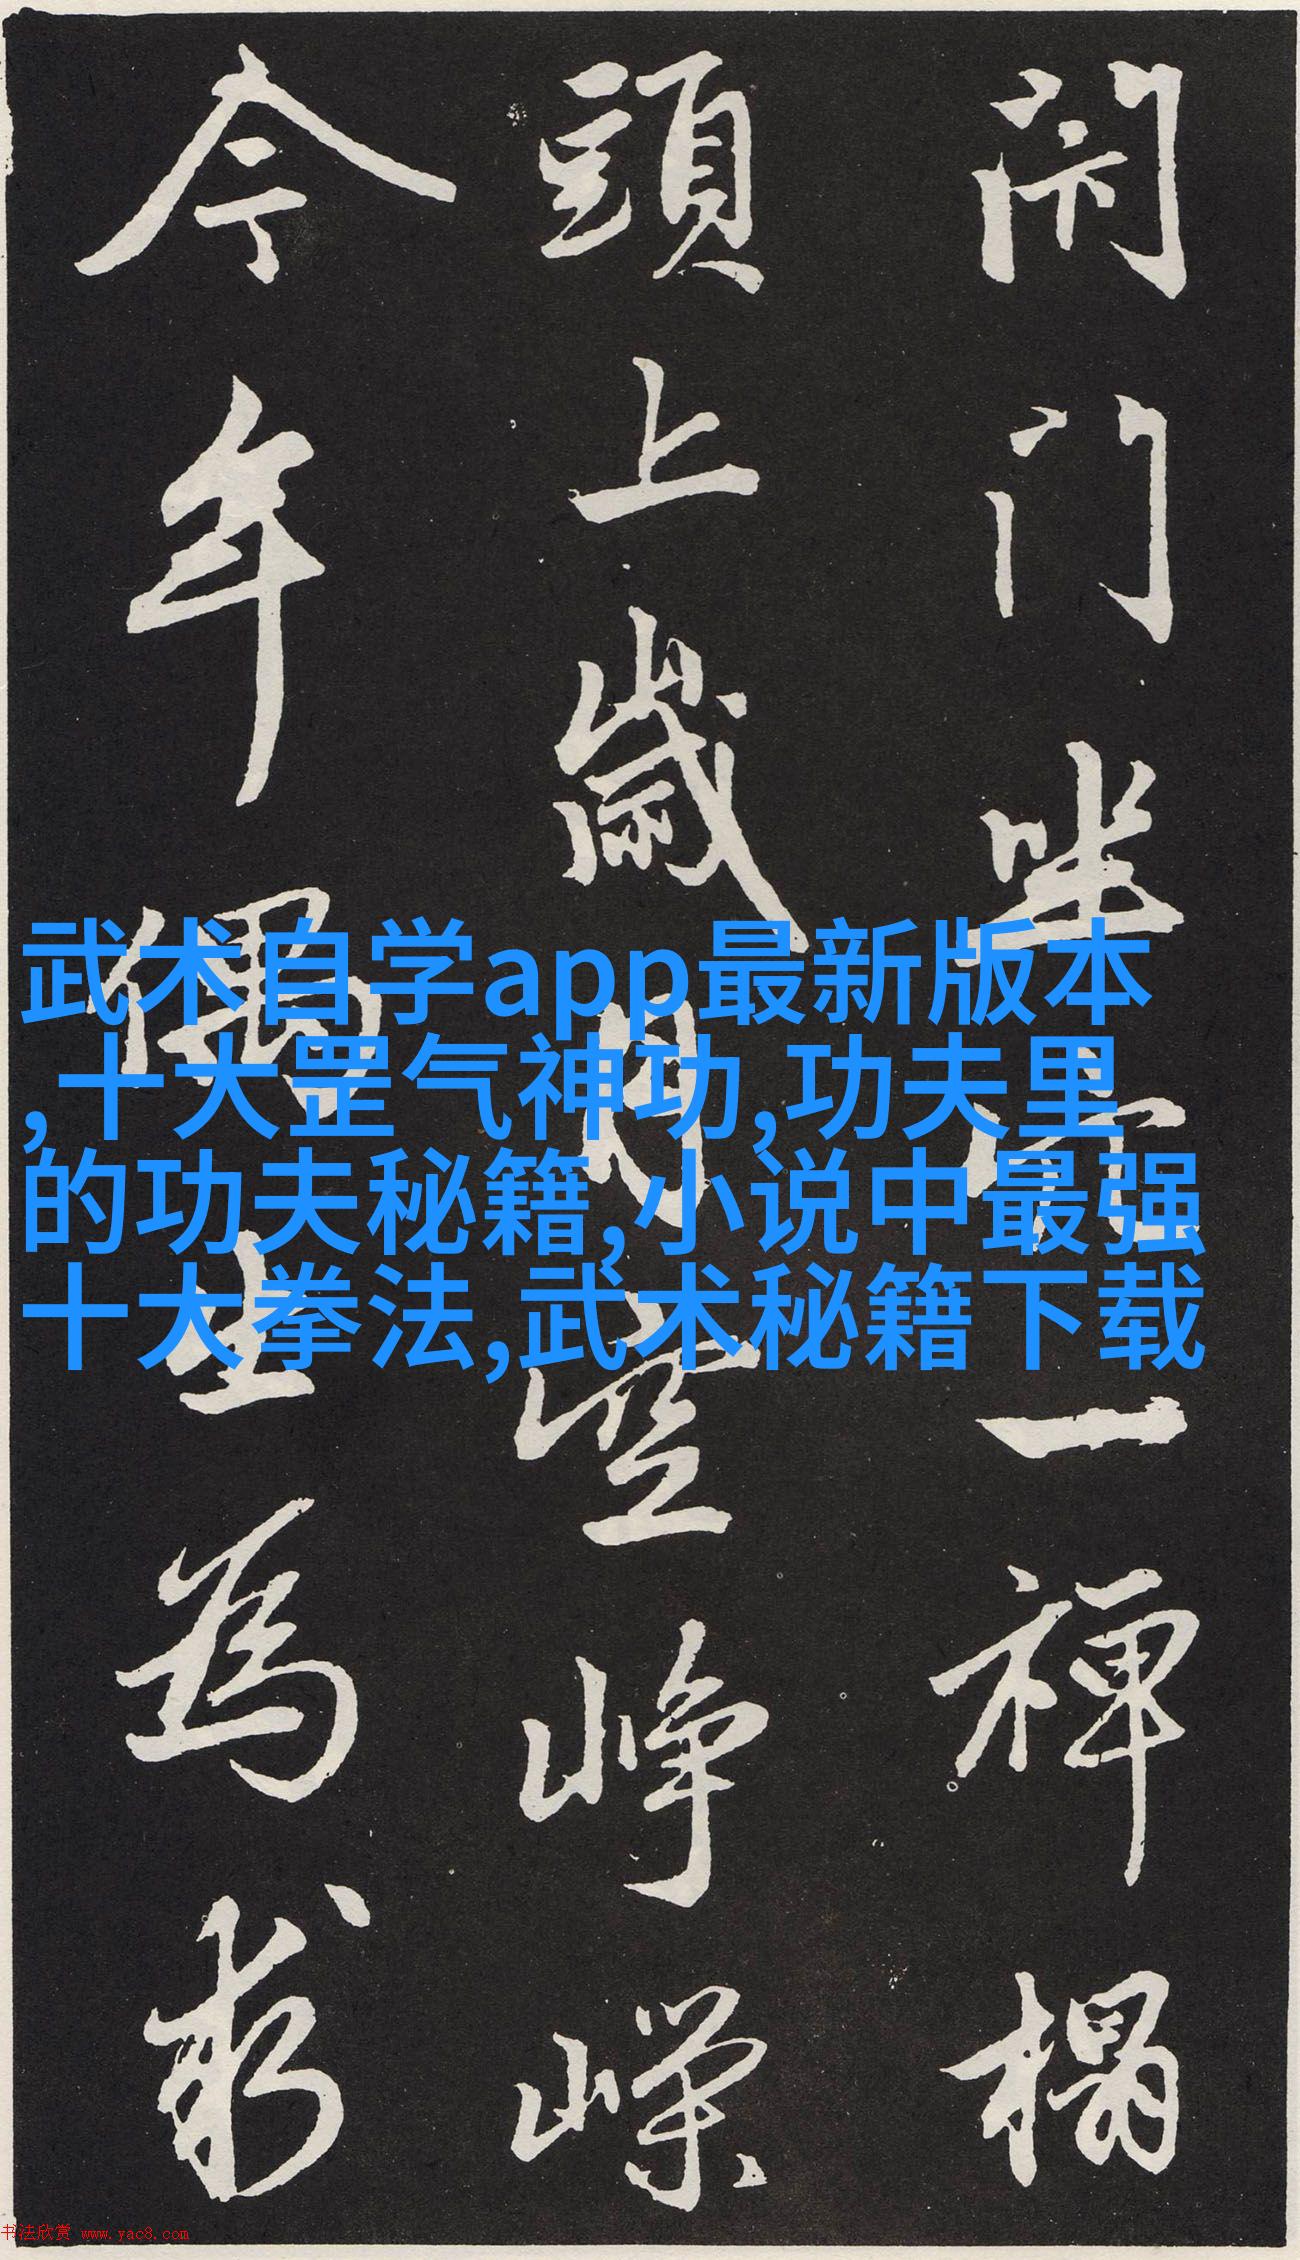 闭门坐穴一禅榻
頭上歲月空崢嶸
今年偶出為求
武术自学app最新版本
,十大罡气神功,功夫里
的功夫秘籍,小说中最强
十大拳法,武术秘籍下载
书法欣赏 www.yac8.com